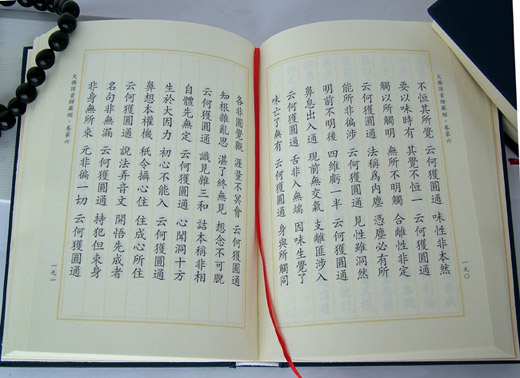 不恆其所覺 云何獲圓通 味性非本然
要以味時有 其覺不恆一 云何獲圓通
觸以所觸明 無所不明觸 合離性非定
云何獲圓通 法稱為內塵 憑塵必有所
能所非徧涉 云何獲圓通 見性雖洞然
明前不明後 四維虧一半 云何獲圓通
鼻息出入通 現前無交氣 支離匪涉入
云何獲圓通 舌非入無端 因味生覺了
味亡了無有 云何獲圓通 身與所觸同
一九〇
各非圓覺觀 涯量不冥會 云何獲圓通
知根雜亂思 湛了終無見 想念不可脫
云何獲圓通 識見雜三和 詰本稱非相
自體先無定 云何獲圓通 心聞洞十方
生於大因力 初心不能入 云何獲圓通
鼻想本權機 秖令攝心住 住成心所住
云何獲圓通 說法弄音文 開悟先成者
名句非無漏 云何獲圓通 持犯但束身
非身無所束 元非徧一切 云何獲圓通
大佛頂首楞嚴經‧卷第六
一九一